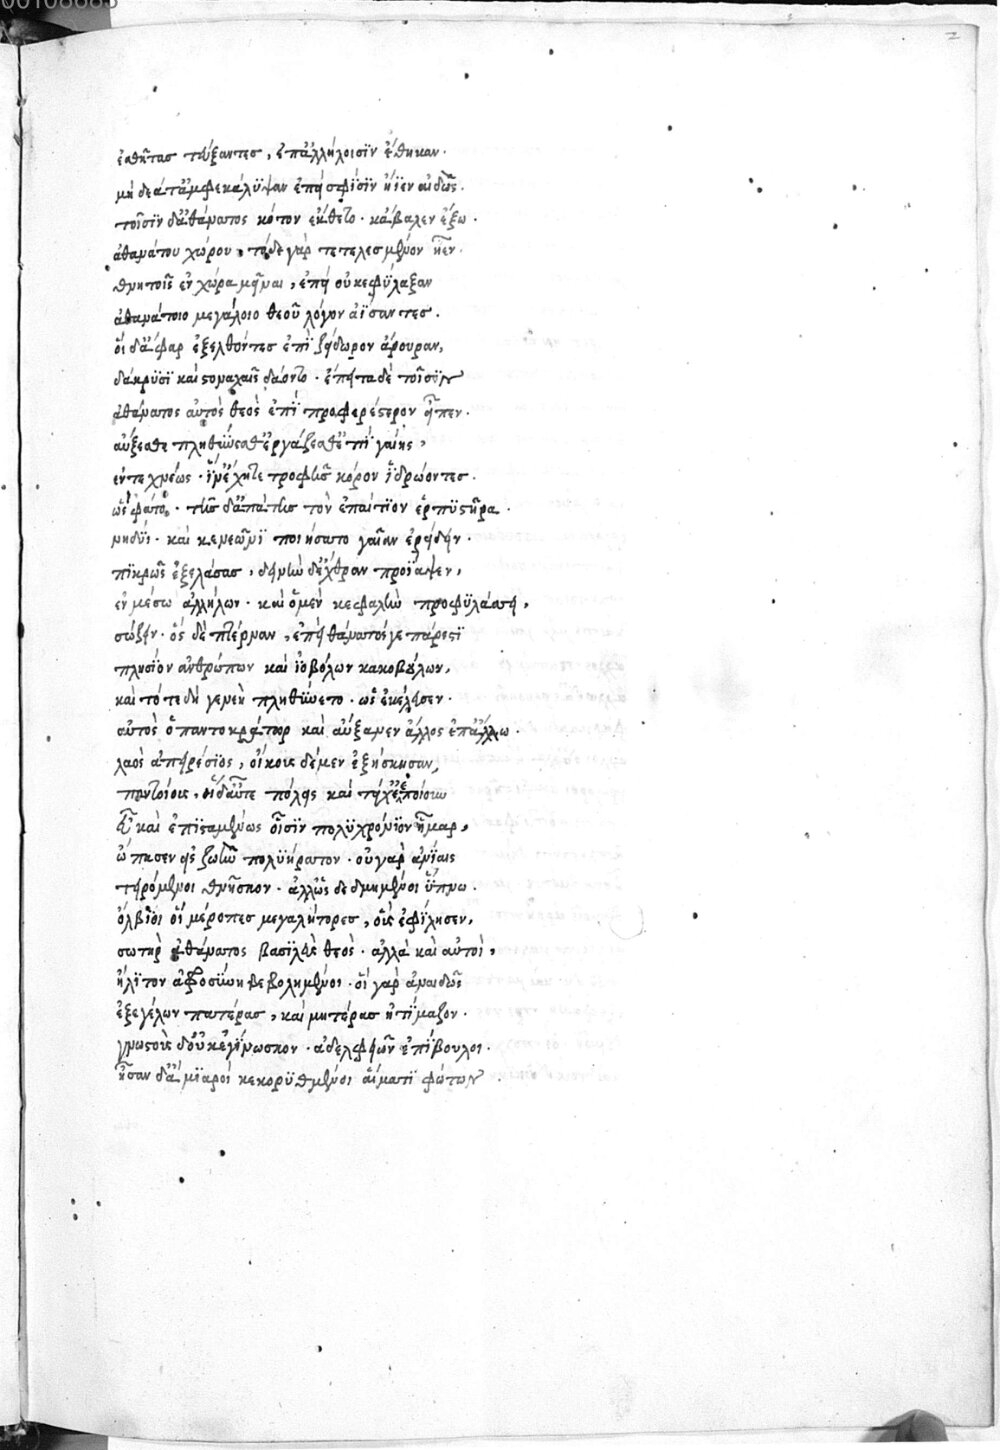 00108685
2
ἐσθῆτας τεύξαντες, ἐπ' ἀλλήλοισϊν ἔθηκαν.
μήδεα τ' ἀμφεκάλϋψαν ἐπεὶ σφίσϊν ἤϊεν αἰδώς.
τοῖσϊν δ' ἀθάνατος κότον ἔκθετο. κἄβαλεν ἔξω
ἀθανάτου χώρου. τόδε γὰρ τετελεσμένον ἦεν.
θνητοῖς ἐν χώρα μεῖναι, ἐπεὶ οὐκ ἐφΰλαξαν
ἀθανάτοιο μεγάλοιο θεοῦ λόγον ἀΐσαντες.
οἱ δ' ἄφαρ ἐξελθόντες ἐπὶ ζείδωρον ἄρουραν,
δάκρυσϊ καὶ στομαχαῖς δεύοντο. ἔπειτα δὲ τοῖσϊν
ἀθάνατος αὐτὸς θεὸς ἐπὶ προφερέστερον εἶπεν.
αὔξεσθε πληθύνεσθ' ἐργάζεσθ' ἐπὶ γαίης,
ἐντεχνέως. ἵν' ἔχητε τροφῆς κόρον ἱδρώοντες.
ὣς φάτο. τῆς δ' ἀπάτης τὸν ἐπαίτϊον ἑρπϋστῆρα
νηδύϊ. καὶ κενεῶνϊ ποιήσατο γαῖαν ἐρείδειν.
πϊκρῶς ἐξελάσας, δεινὴν δ' ἔχθραν προΐαψεν,
ἐν μέσω ἀλλήλων. καὶ ὁ μὲν κεφαλὴν προφϋλάσσει,
σώζειν. ὃς δὲ πτέρναν, ἐπεὶ θάνατός γε πάρεστϊ
πλησίον ἀνθρώπων καὶ ἰοβόλων κακοβούλων,
καὶ τότε δὴ γενεὴ πληθύνετο. ὡς ἐκέλευσεν.
αὐτὸς ὁ παντοκράτωρ καὶ αὔξανεν ἄλλος ἐπ' ἄλλω.
λαὸς ἀπειρέσϊος, οἴκους δέ μεν ἐξήσκησαν,
παντοίους, οἱ δ' αὖτε πόλεις καὶ τείχε' ἐποίουν
εὖ καὶ ἐπισταμένως οἷσϊν πολϋχρόνϊον ἦμαρ,
ὤπασεν εἰς ζωὴν πολϋήρατον. οὐ γὰρ ἀνΐαις
τειρόμενοι θνῆσκον. ἀλλ' ὡς δεδμημένοι ὕπνω.
ὄλβϊοι οἱ μέροπες μεγαλήτορες, οὓς ἐφΐλησεν,
σωτὴρ ἀθάνατος βασϊλεὺς θεὸς. ἀλλὰ καὶ αὐτοὶ,
ἤλϊτον ἀφροσύνη βεβολημένοι. οἱ γὰρ ἀναιδῶς
ἐξεγέλων πατέρας, καὶ μητέρας ἠτίμαζον.
γνωστοὺς δ' οὐκ ἐγίνωσκον. ἀδελφειῶν ἐπίβουλοι.
ἦσαν δ' ἄρ' μϊαροὶ κεκορϋθμένοι αἵματϊ φώτων.